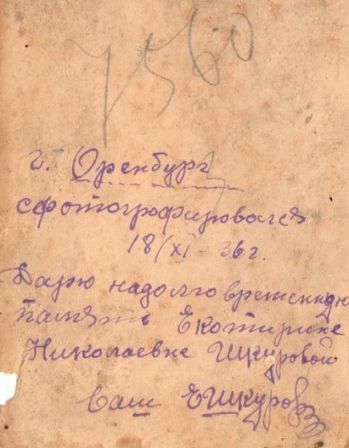 7560
г. Оренбург
сфотографировался
18/XI - 36 г.
Дарю на долговременную
память Екотирине
Николаевне Шкуровой
Ваш ЕШкуров